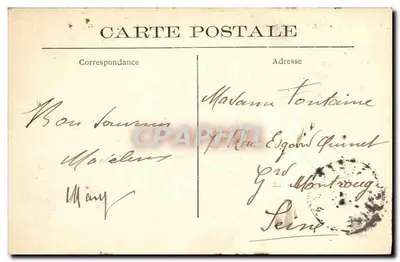 CARTE POSTALE
Correspondance
Adresse
Madame Fontaine
Bon
7 Rue Edgard Quinet
Madeleine
Gd Montrouge
Mary
Seine